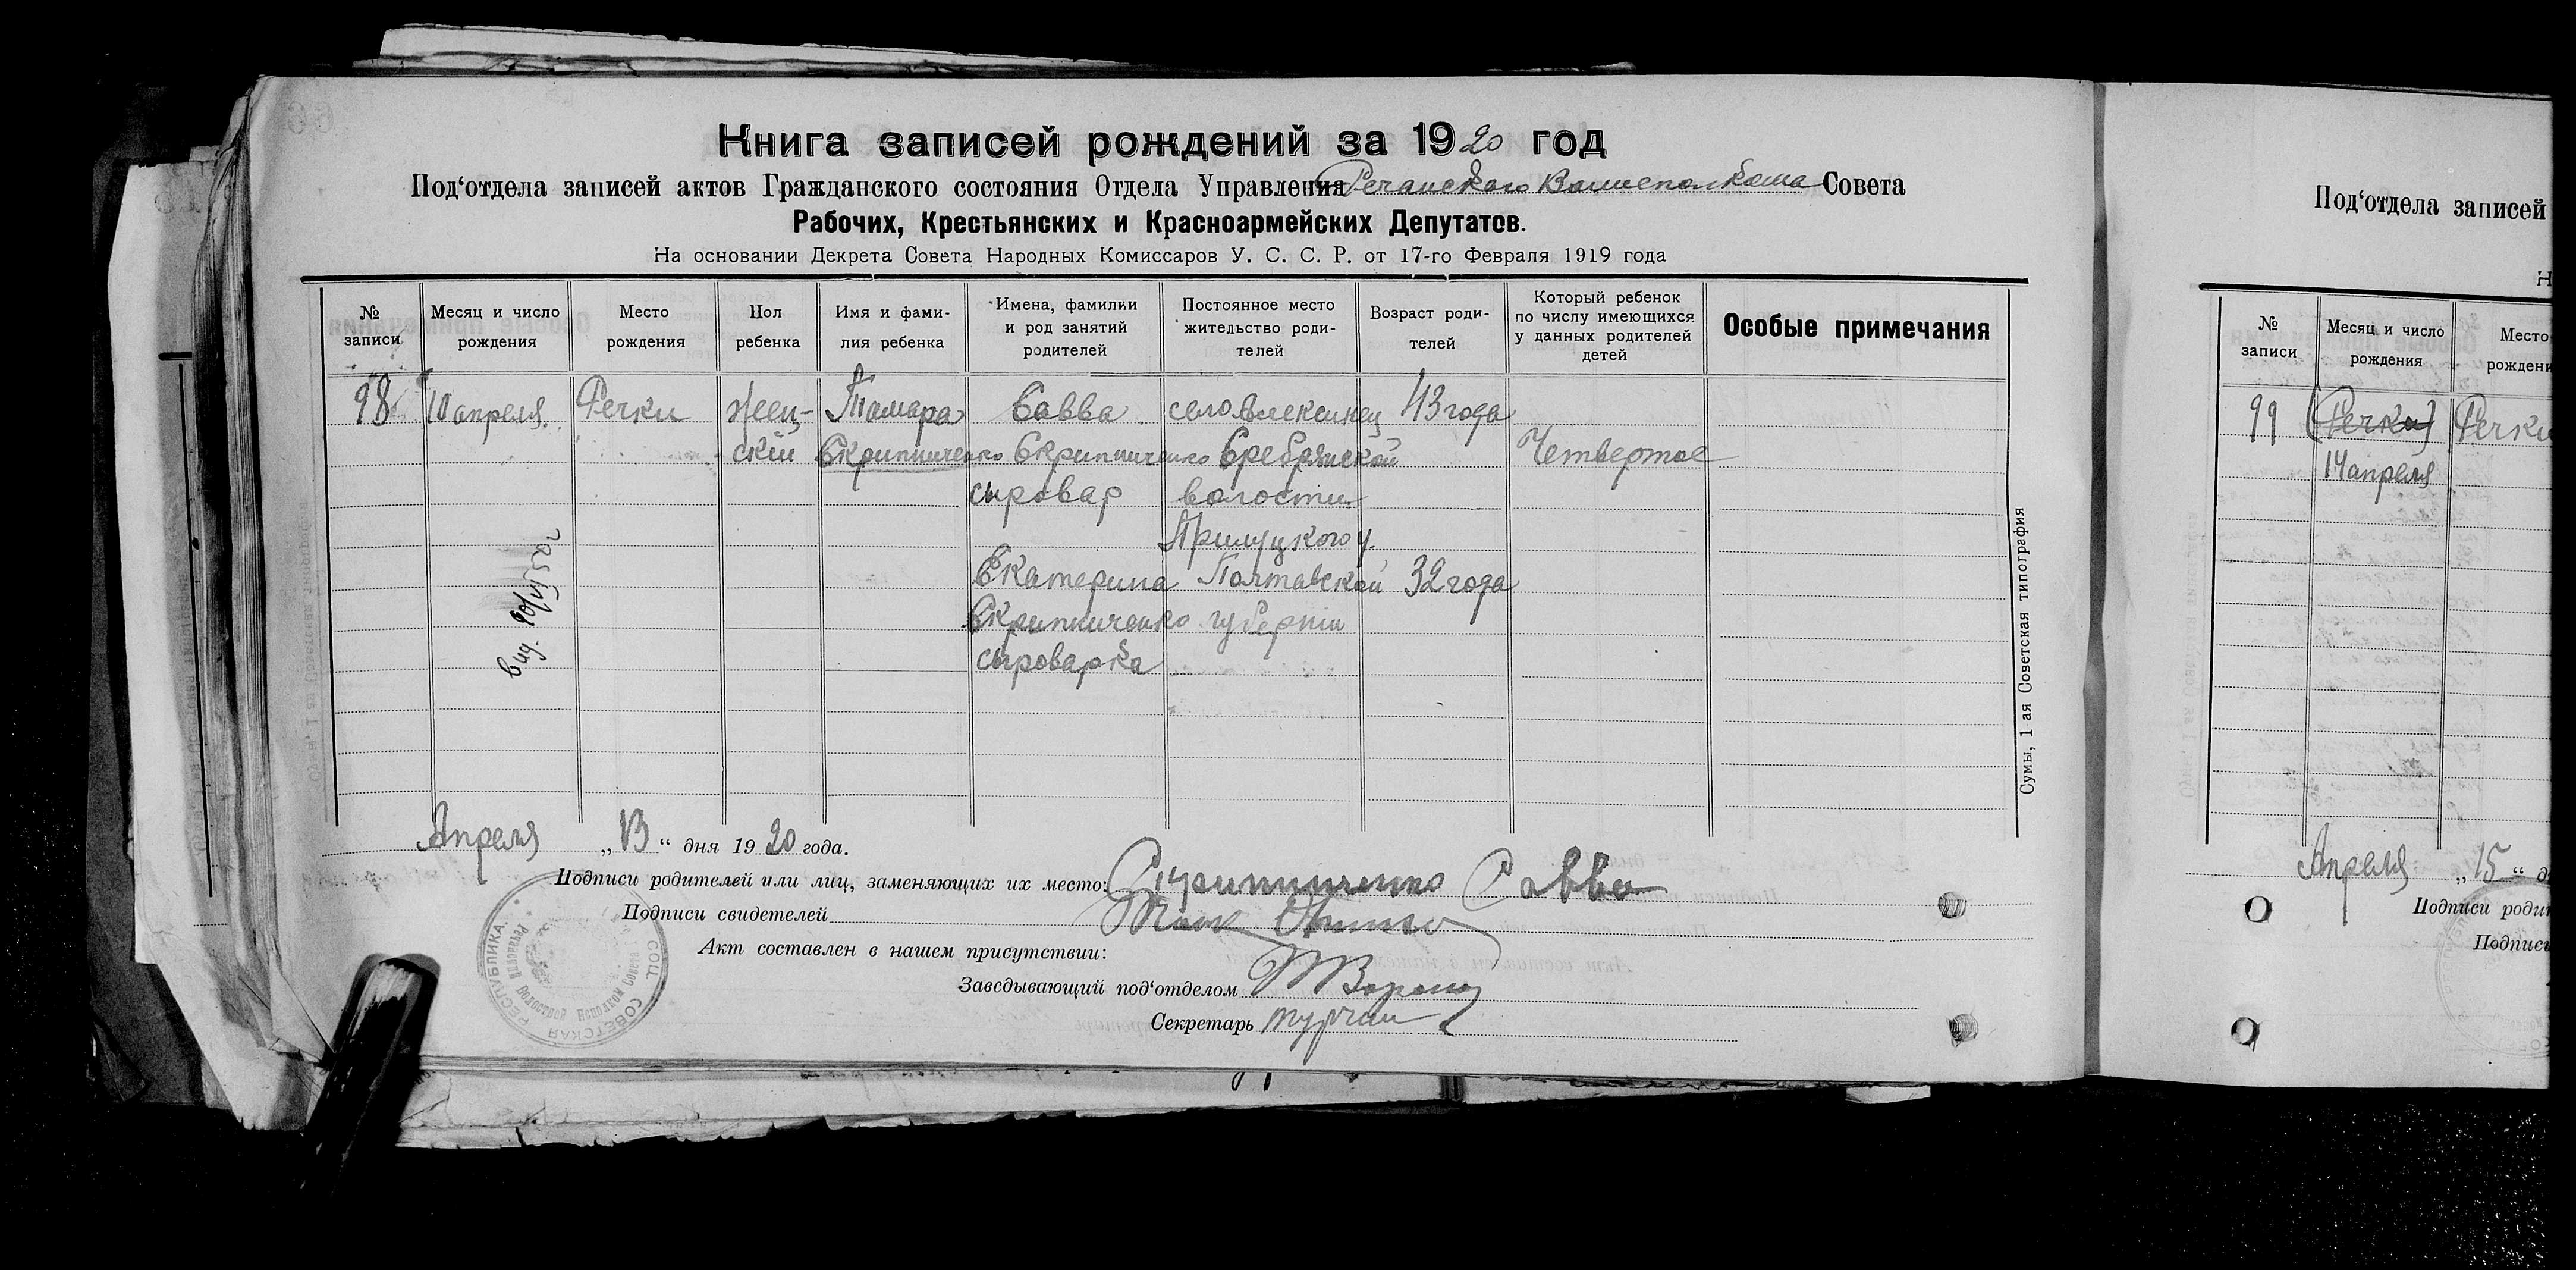 Книга записей рождений за 1920 год
Под‘отдела записей актов Гражданского состояния Отдела Управления Речанского Волисполкома Совета
Рабочих, Крестьянских и Красноармейских Депутатов.
На основании Декрета Совета Народных Комиссаров У. С. С. Р. от 17-го Февраля 1919 года
№ записи
Месяц и число рождения
Место рождения
Пол ребенка
Имя и фамилия ребенка
Имена, фамилии и род занятий родителей
Постоянное место жительство родителей
Возраст родителей
Который ребенок по числу имеющихся у данных родителей детей
Особые примечания
98 10 апреля. Речки жен- Тамара Савва село Алексинец 43 года
ский Скрипниченко Скрипниченко Сребрянской Четвертое
сыровар волости
Прилуцкого у.
Екатерина Полтавской 32 года
Скрипниченко губернии
сыроварка
вид.
Апреля „13“ дня 1920 года.
Подписи родителей или лиц, заменяющих их место: Скрипниченко Савва
Подписи свидетелей
Акт составлен в нашем присутствии:
Заведывающий под‘отделом
Секретарь
РЕСПУБЛИКА СОЦ. СОВЕТСКАЯ
Волостной Исполком Совета
Сумы, 1 ая Советская типография
Под‘отдела записей
Н
№ записи
Месяц и число рождения
Место рождени
99 (Речки) Речки
14 апреля
Апреля „15“ д
Подписи роди
Подписи